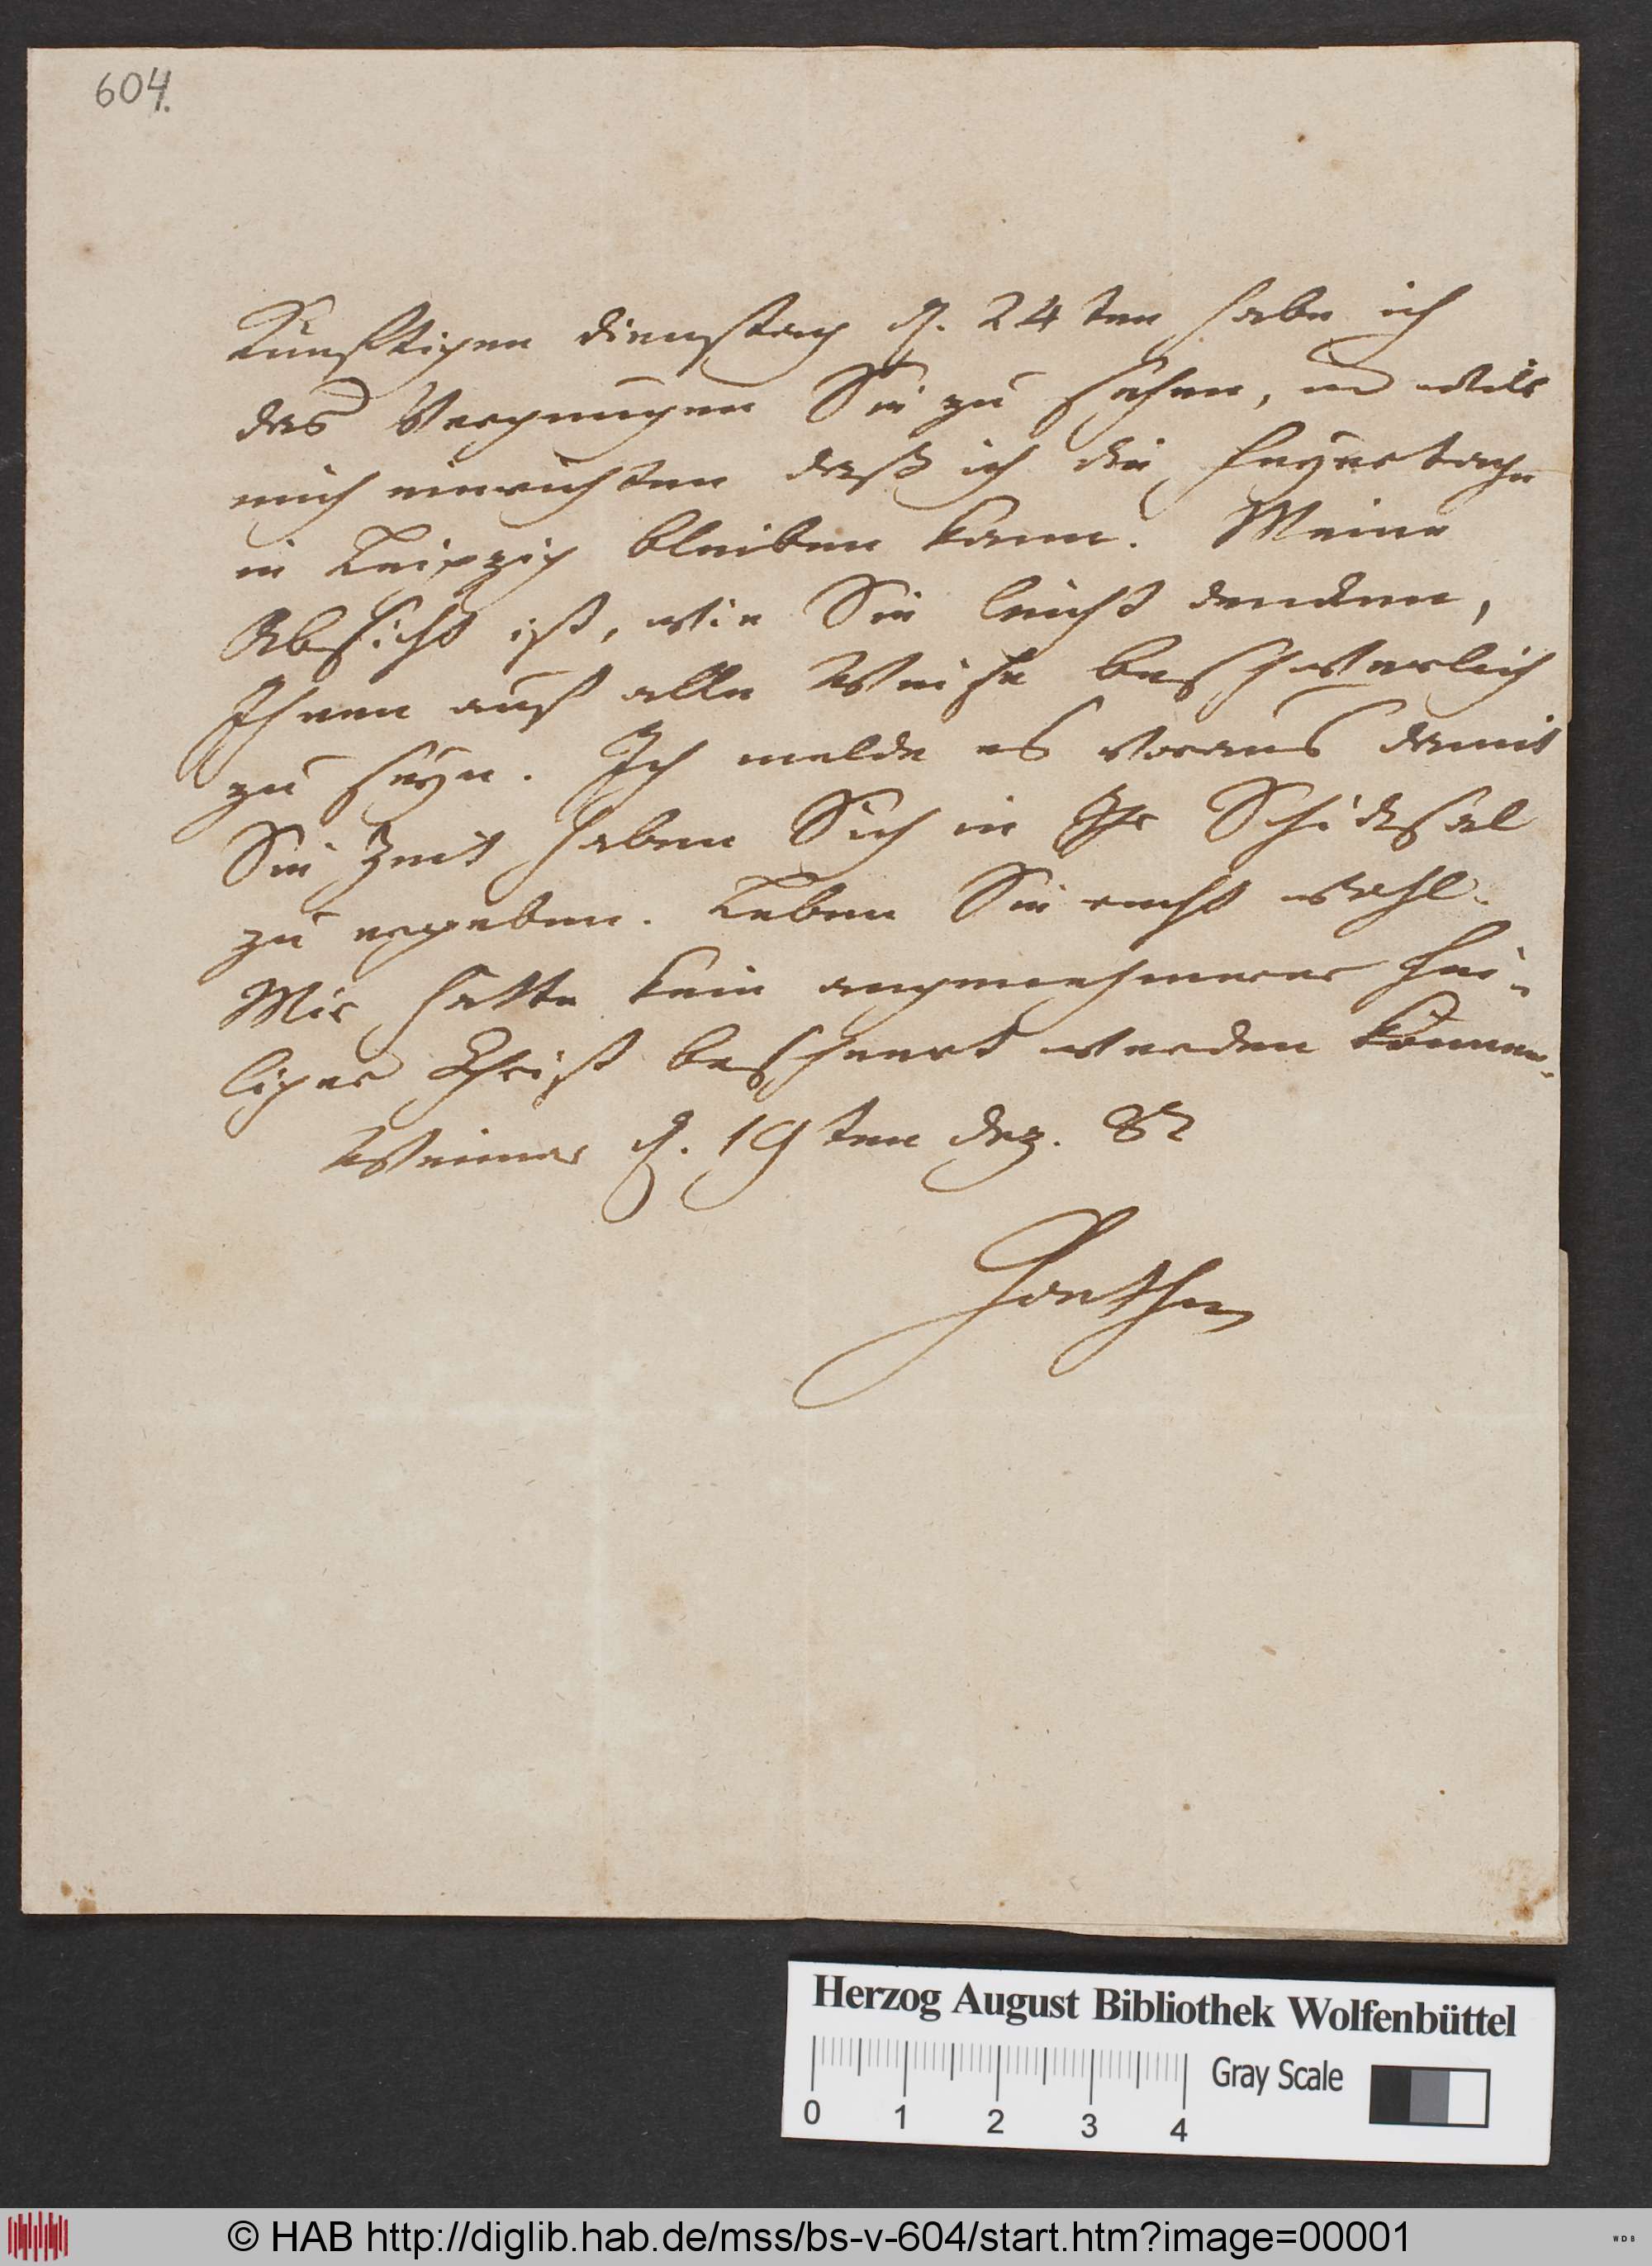 604.
Künftigen Dienstag d. 24ten habe ich
das Vergnügen Sie zu sehen, und will
mich einrichten daß ich die Feyertage
in Leipzig bleiben kann. Meine
Absicht ist, wie Sie leicht dencken,
Ihnen auf alle Weise beschwerlich
zu seyn. Ich melde es voraus damit
Sie Zeit haben Sich in Ihr Schicksal
zu ergeben. Leben Sie recht wohl.
Mir hätte kein angenehmerer hei-
liger Christ bescheert werden können.
Weimar d. 19ten Dez. 82
Goethe
Herzog August Bibliothek Wolfenbüttel
Gray Scale
0 1 2 3 4
© HAB http://diglib.hab.de/mss/bs-v-604/start.htm?image=00001
WDB